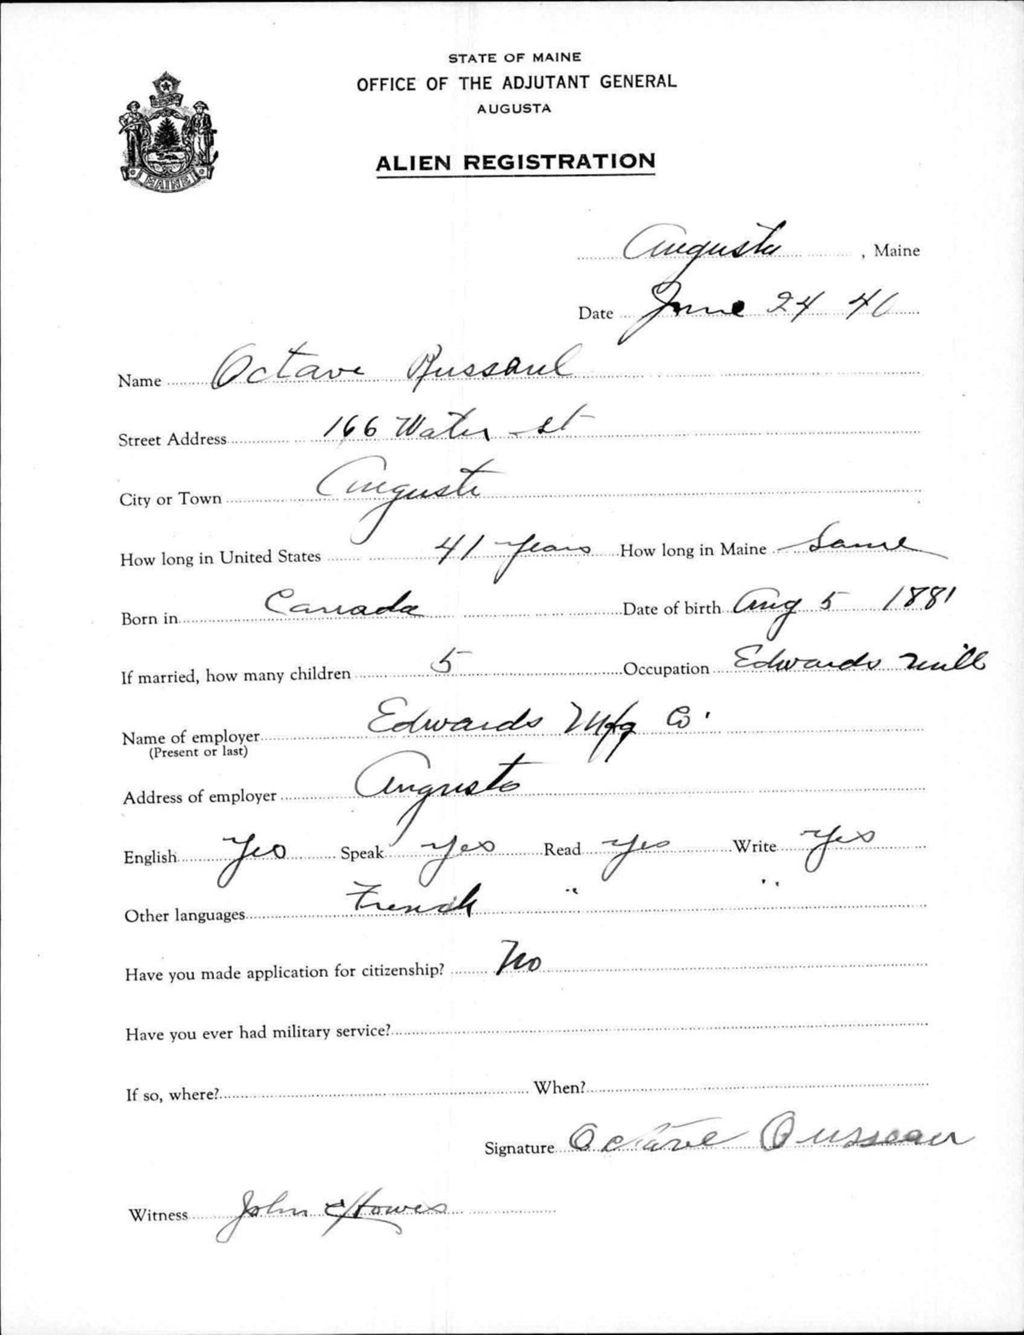 STATE OF MAINE
OFFICE OF THE ADJUTANT GENERAL
AUGUSTA
MAINE
ALIEN REGISTRATION
Augusta, Maine
Date June 24 40
Name Octave
Street Address 166 Water St
City or Town Augusta
How long in United States 41 years How long in Maine Same
Born in Canada Date of birth Aug 5 1881
If married, how many children 5 Occupation Edwards Mill
Name of employer Edwards Mfg Co.
(Present or last)
Address of employer Augusta
English Yes Speak Yes Read Yes Write Yes
Other languages French " "
Have you made application for citizenship? No
Have you ever had military service?
If so, where? When?
Signature Octave
Witness John Howes